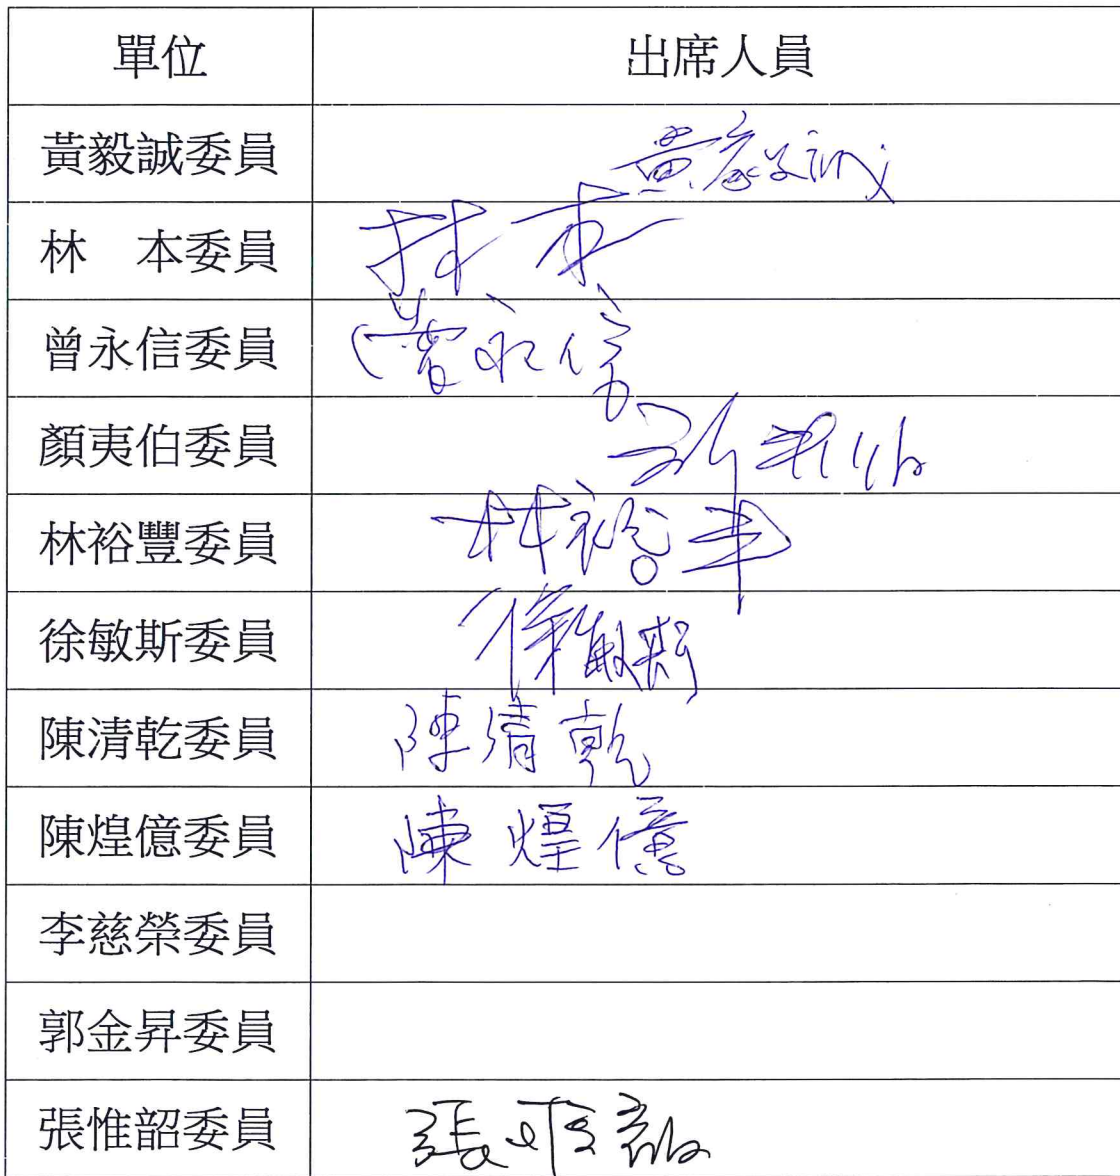 單位 出席人員
黃毅誠委員 黃毅誠
林 本委員 林本
曾永信委員 曾永信
顏夷伯委員
林裕豐委員 林裕丰
徐敏斯委員 徐敏斯
陳清乾委員 陳清乾
陳煌億委員 陳煌億
李慈榮委員
郭金昇委員
張惟韶委員 張惟韶